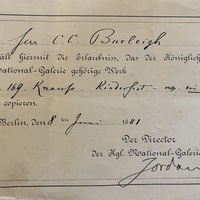 Herr C. C. Burleigh
ält hiermit die Erlaubniss, das der Königlich
ational-Galerie gehörige Werk
169. Knaus. Kinderfest
copieren.
Berlin, den 8 ten Juni 1881
Der Director
der Kgl. National-Galerie
Jordan